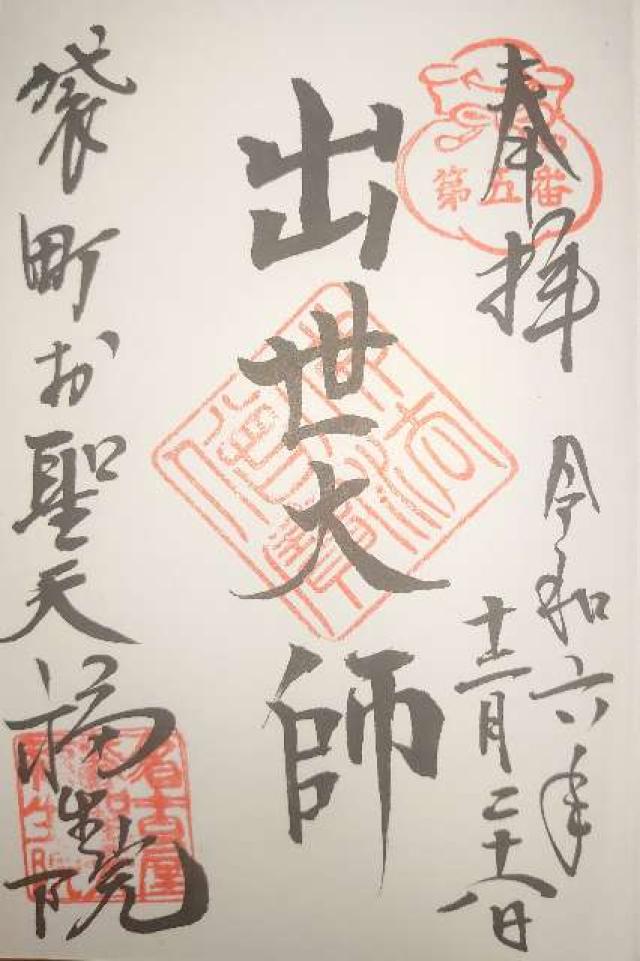 奉拝
第五番
令和六年
十二月二十八日
出世大師
袋町お聖天
福生院
名古屋